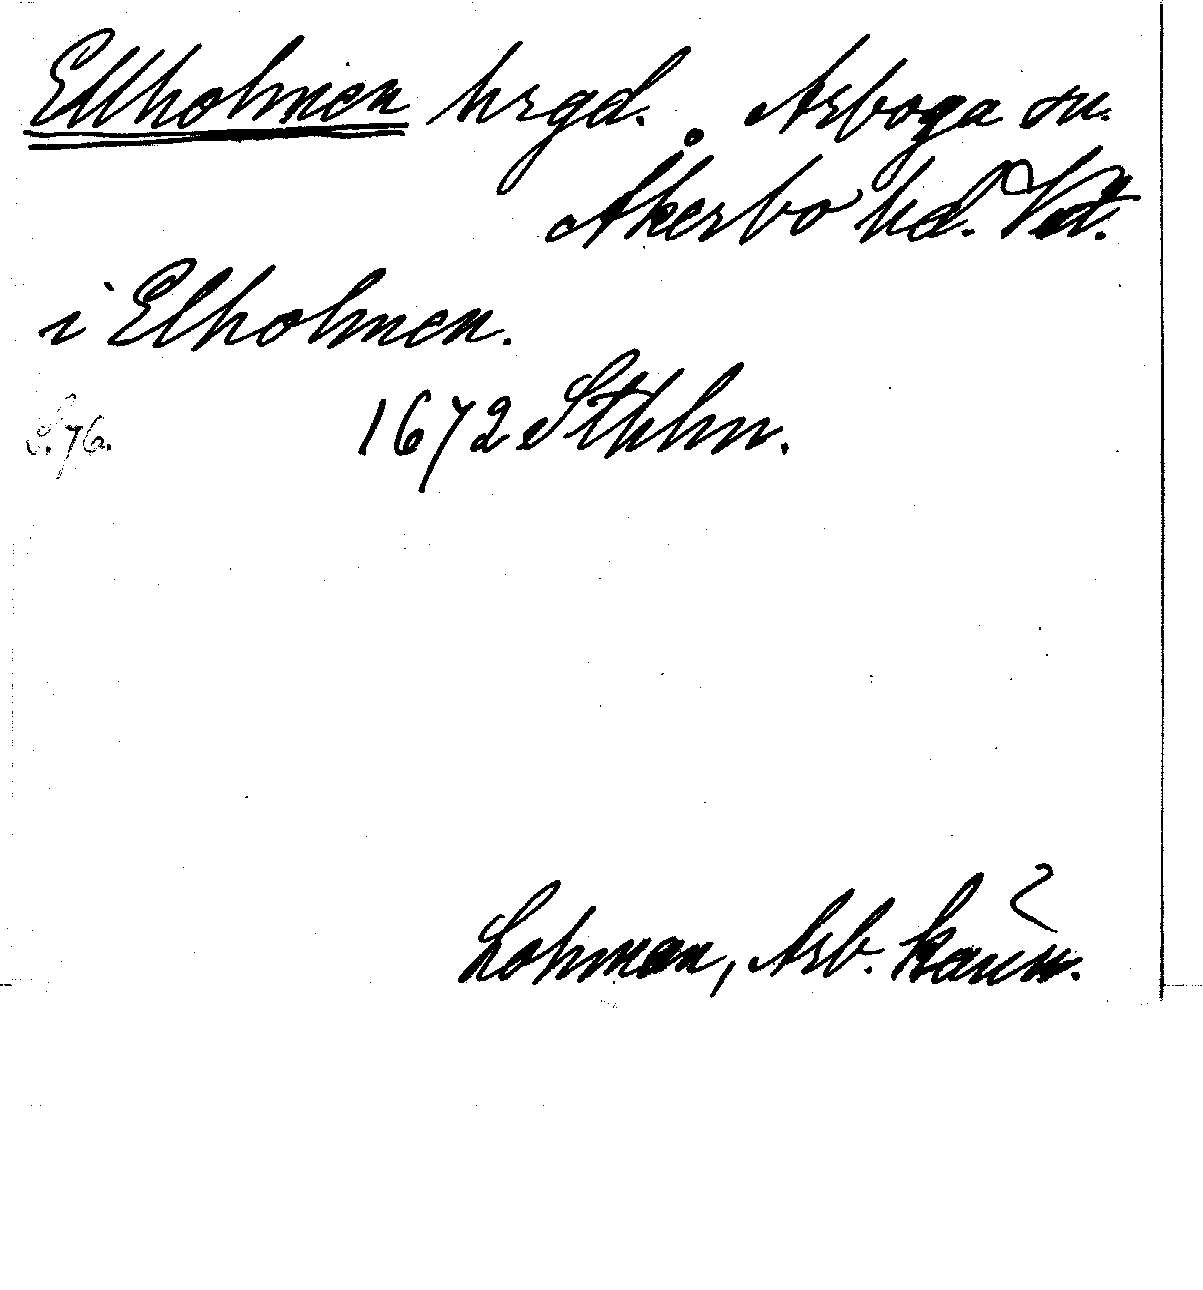 Ellholmen hrgd. Arboga sn.
Åkerbo hd. Vstl.
i Elholmen.
S. 76. 1672 Sthlm.
Lohman, Arb. känn.